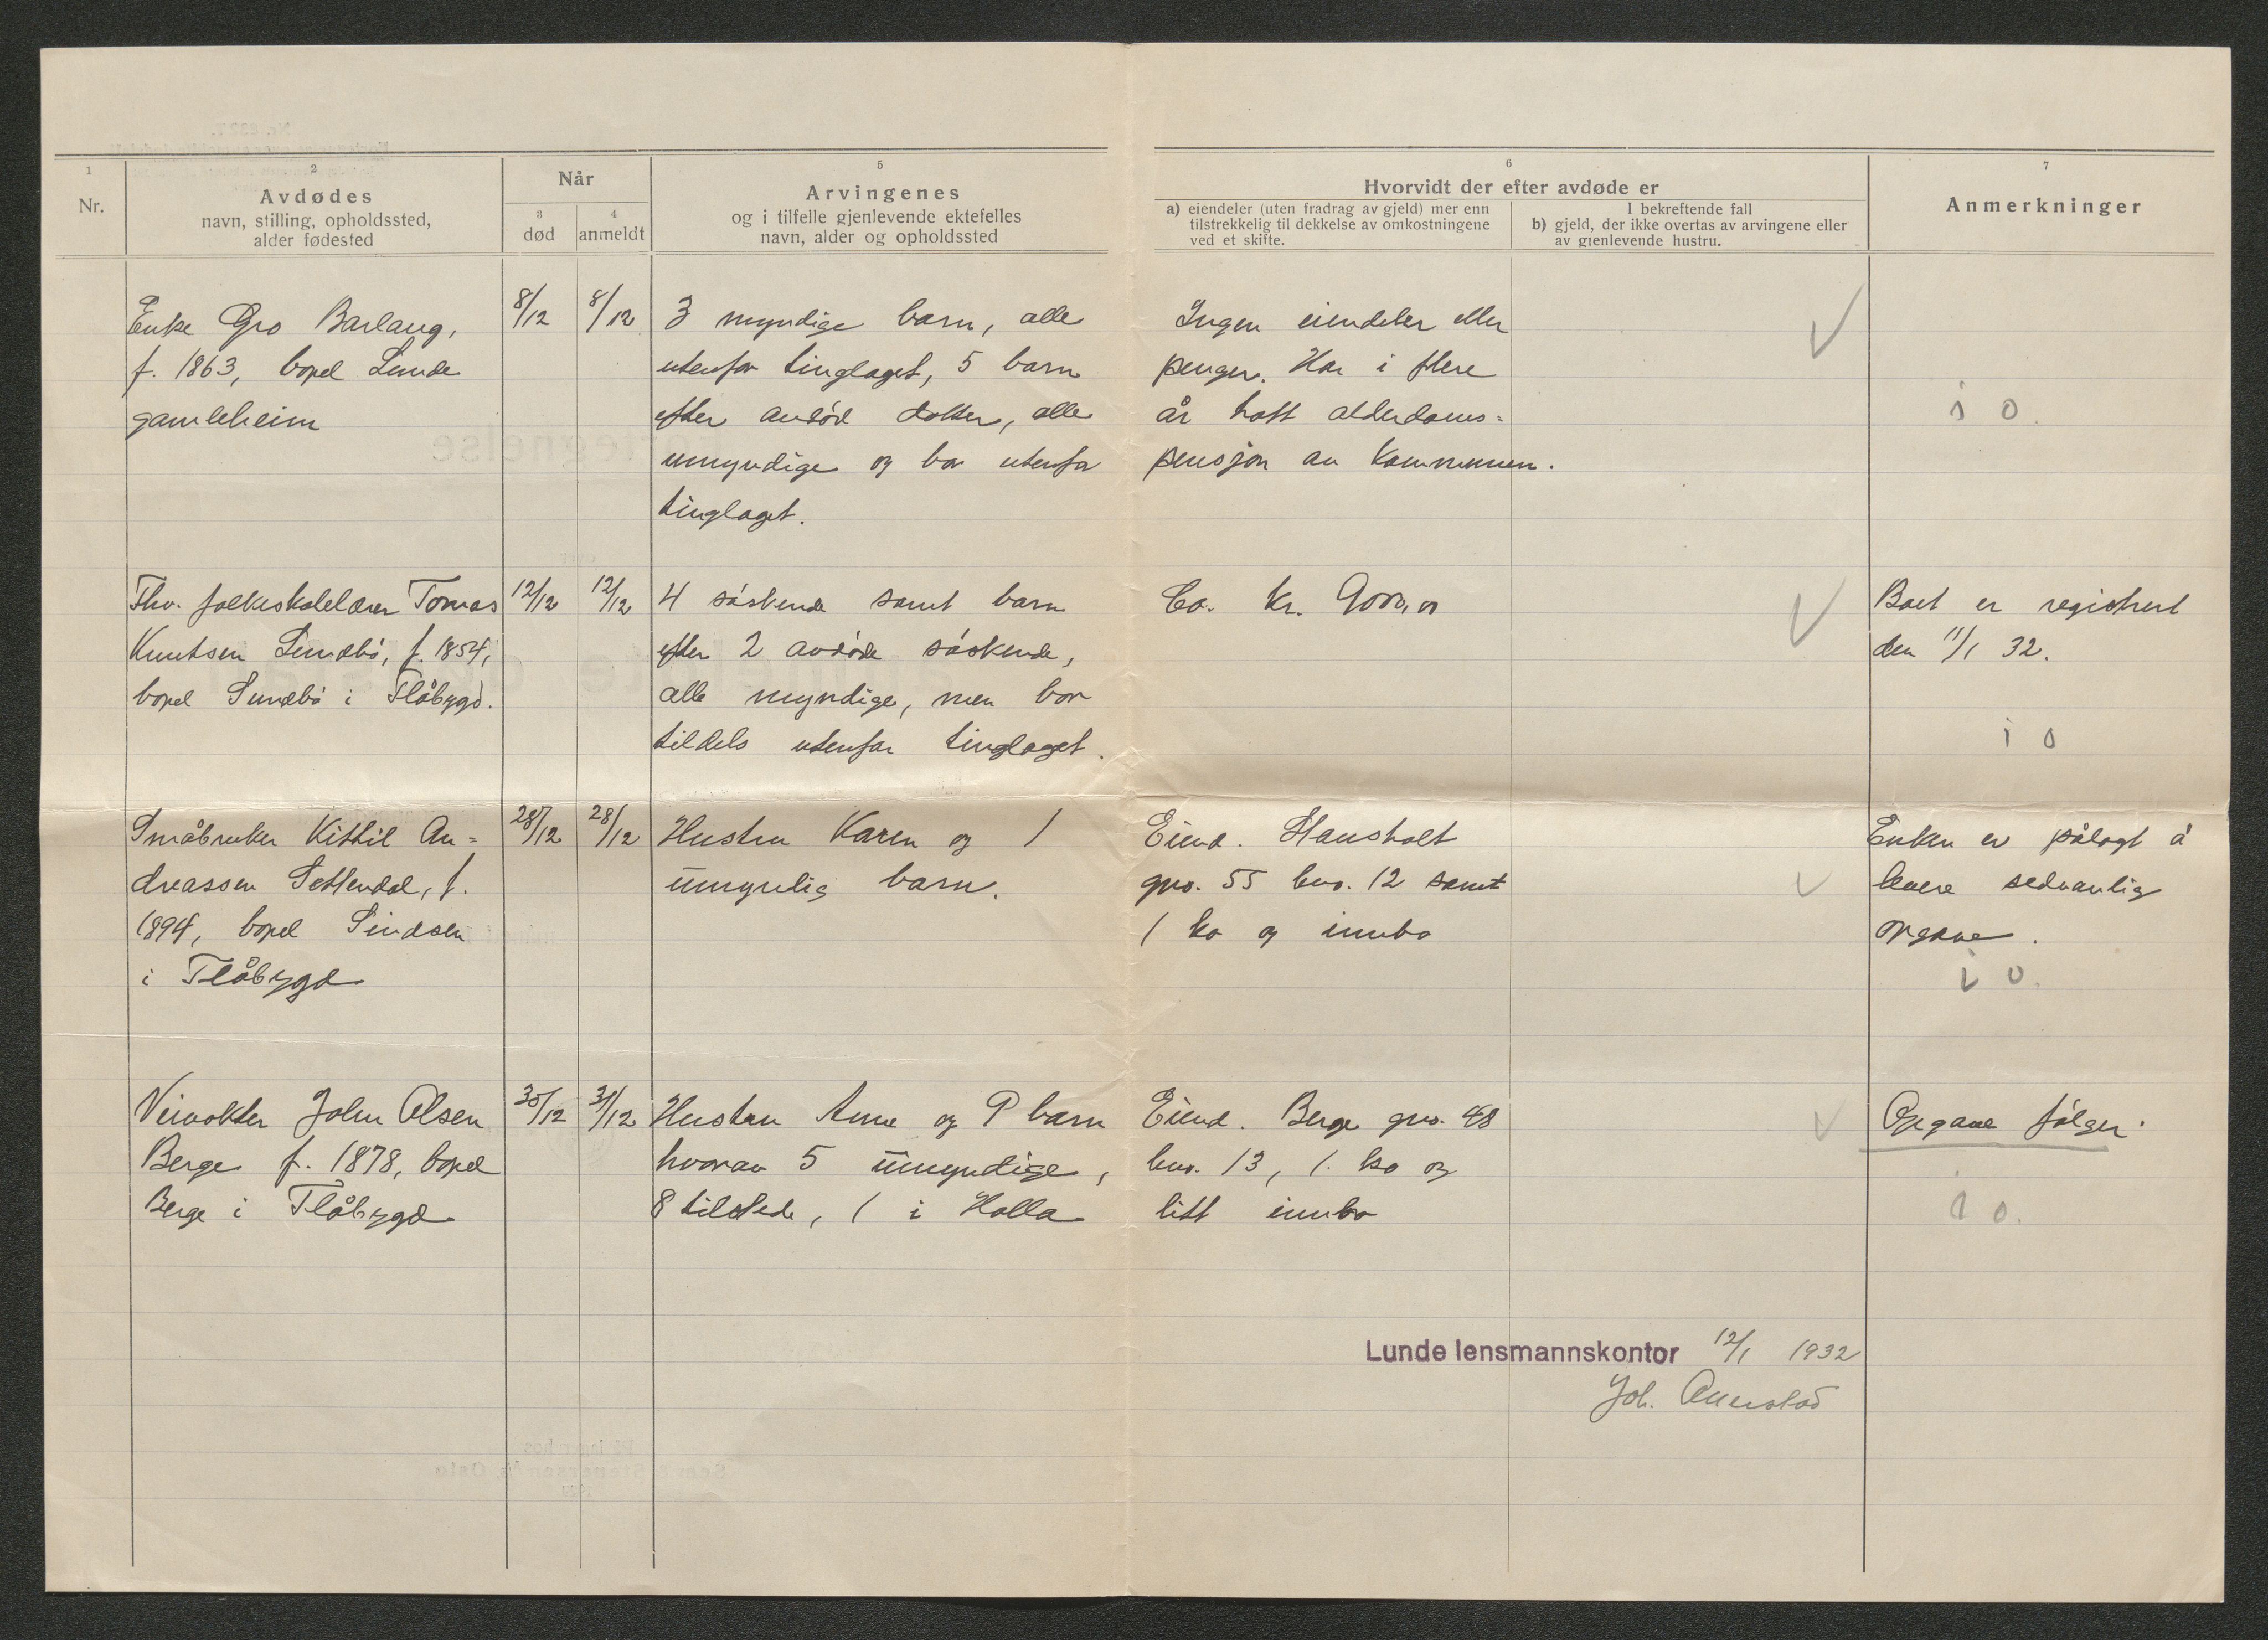 1
Nr.
2
Avdødes
navn, stilling, opholdssted,
alder fødested
Når
3
død
4
anmeldt
5
Arvingenes
og i tilfelle gjenlevende ektefelles
navn, alder og opholdssted
6
Hvorvidt der efter avdøde er
a) eiendeler (uten fradrag av gjeld) mer enn
tilstrekkelig til dekkelse av omkostningene
ved et skifte.
I bekreftende fall
b) gjeld, der ikke overtas av arvingene eller
av gjenlevende hustru.
7
Anmerkninger
Enke Gro Barlaug,
f. 1863, bopel Lunde
gamleheim
8/12
8/12
3 myndige barn, alle
utenfor tinglaget, 5 barn
efter avdød datter, alle
umyndige og bor utenfor
tinglaget.
Ingen eiendeler eller
penger. Har i flere
år hatt alderdoms=
pensjon av kommunen.
i o.
Fhv. folkeskolelærer Tomas
Knutsen Sundbö, f. 1854,
bopel Sundbö i Flåbygd.
12/12
12/12
4 söskende samt barn
efter 2 avdöde söskende,
alle myndige, men bor
tildels utenfor tinglaget.
Ca. kr. 9000,00
Boet er registrert
den 11/1 32.
i o
Småbruker Kittil An=
dreassen Settendal, f.
1894, bopel Sindsen
i Flåbygd
28/12
28/12
Hustru Karen og 1
umyndig barn.
Eiend. Hausholt
gno. 55 bno. 12 samt
1 ko og innbo
Enken er pålagt å
levere sedvanlig
opgave.
i o.
Veivokter John Olsen
Berge f. 1878, bopel
Berge i Flåbygd
30/12
31/12
Hustru Anne og 9 barn
hvorav 5 umyndige,
8 tilstede, 1 i Holla
Eiend. Berge gno. 48
bno. 13, 1 ko og
litt innbo
Opgave fölger.
i o.
Lunde lensmannskontor 12/1 1932
Joh.